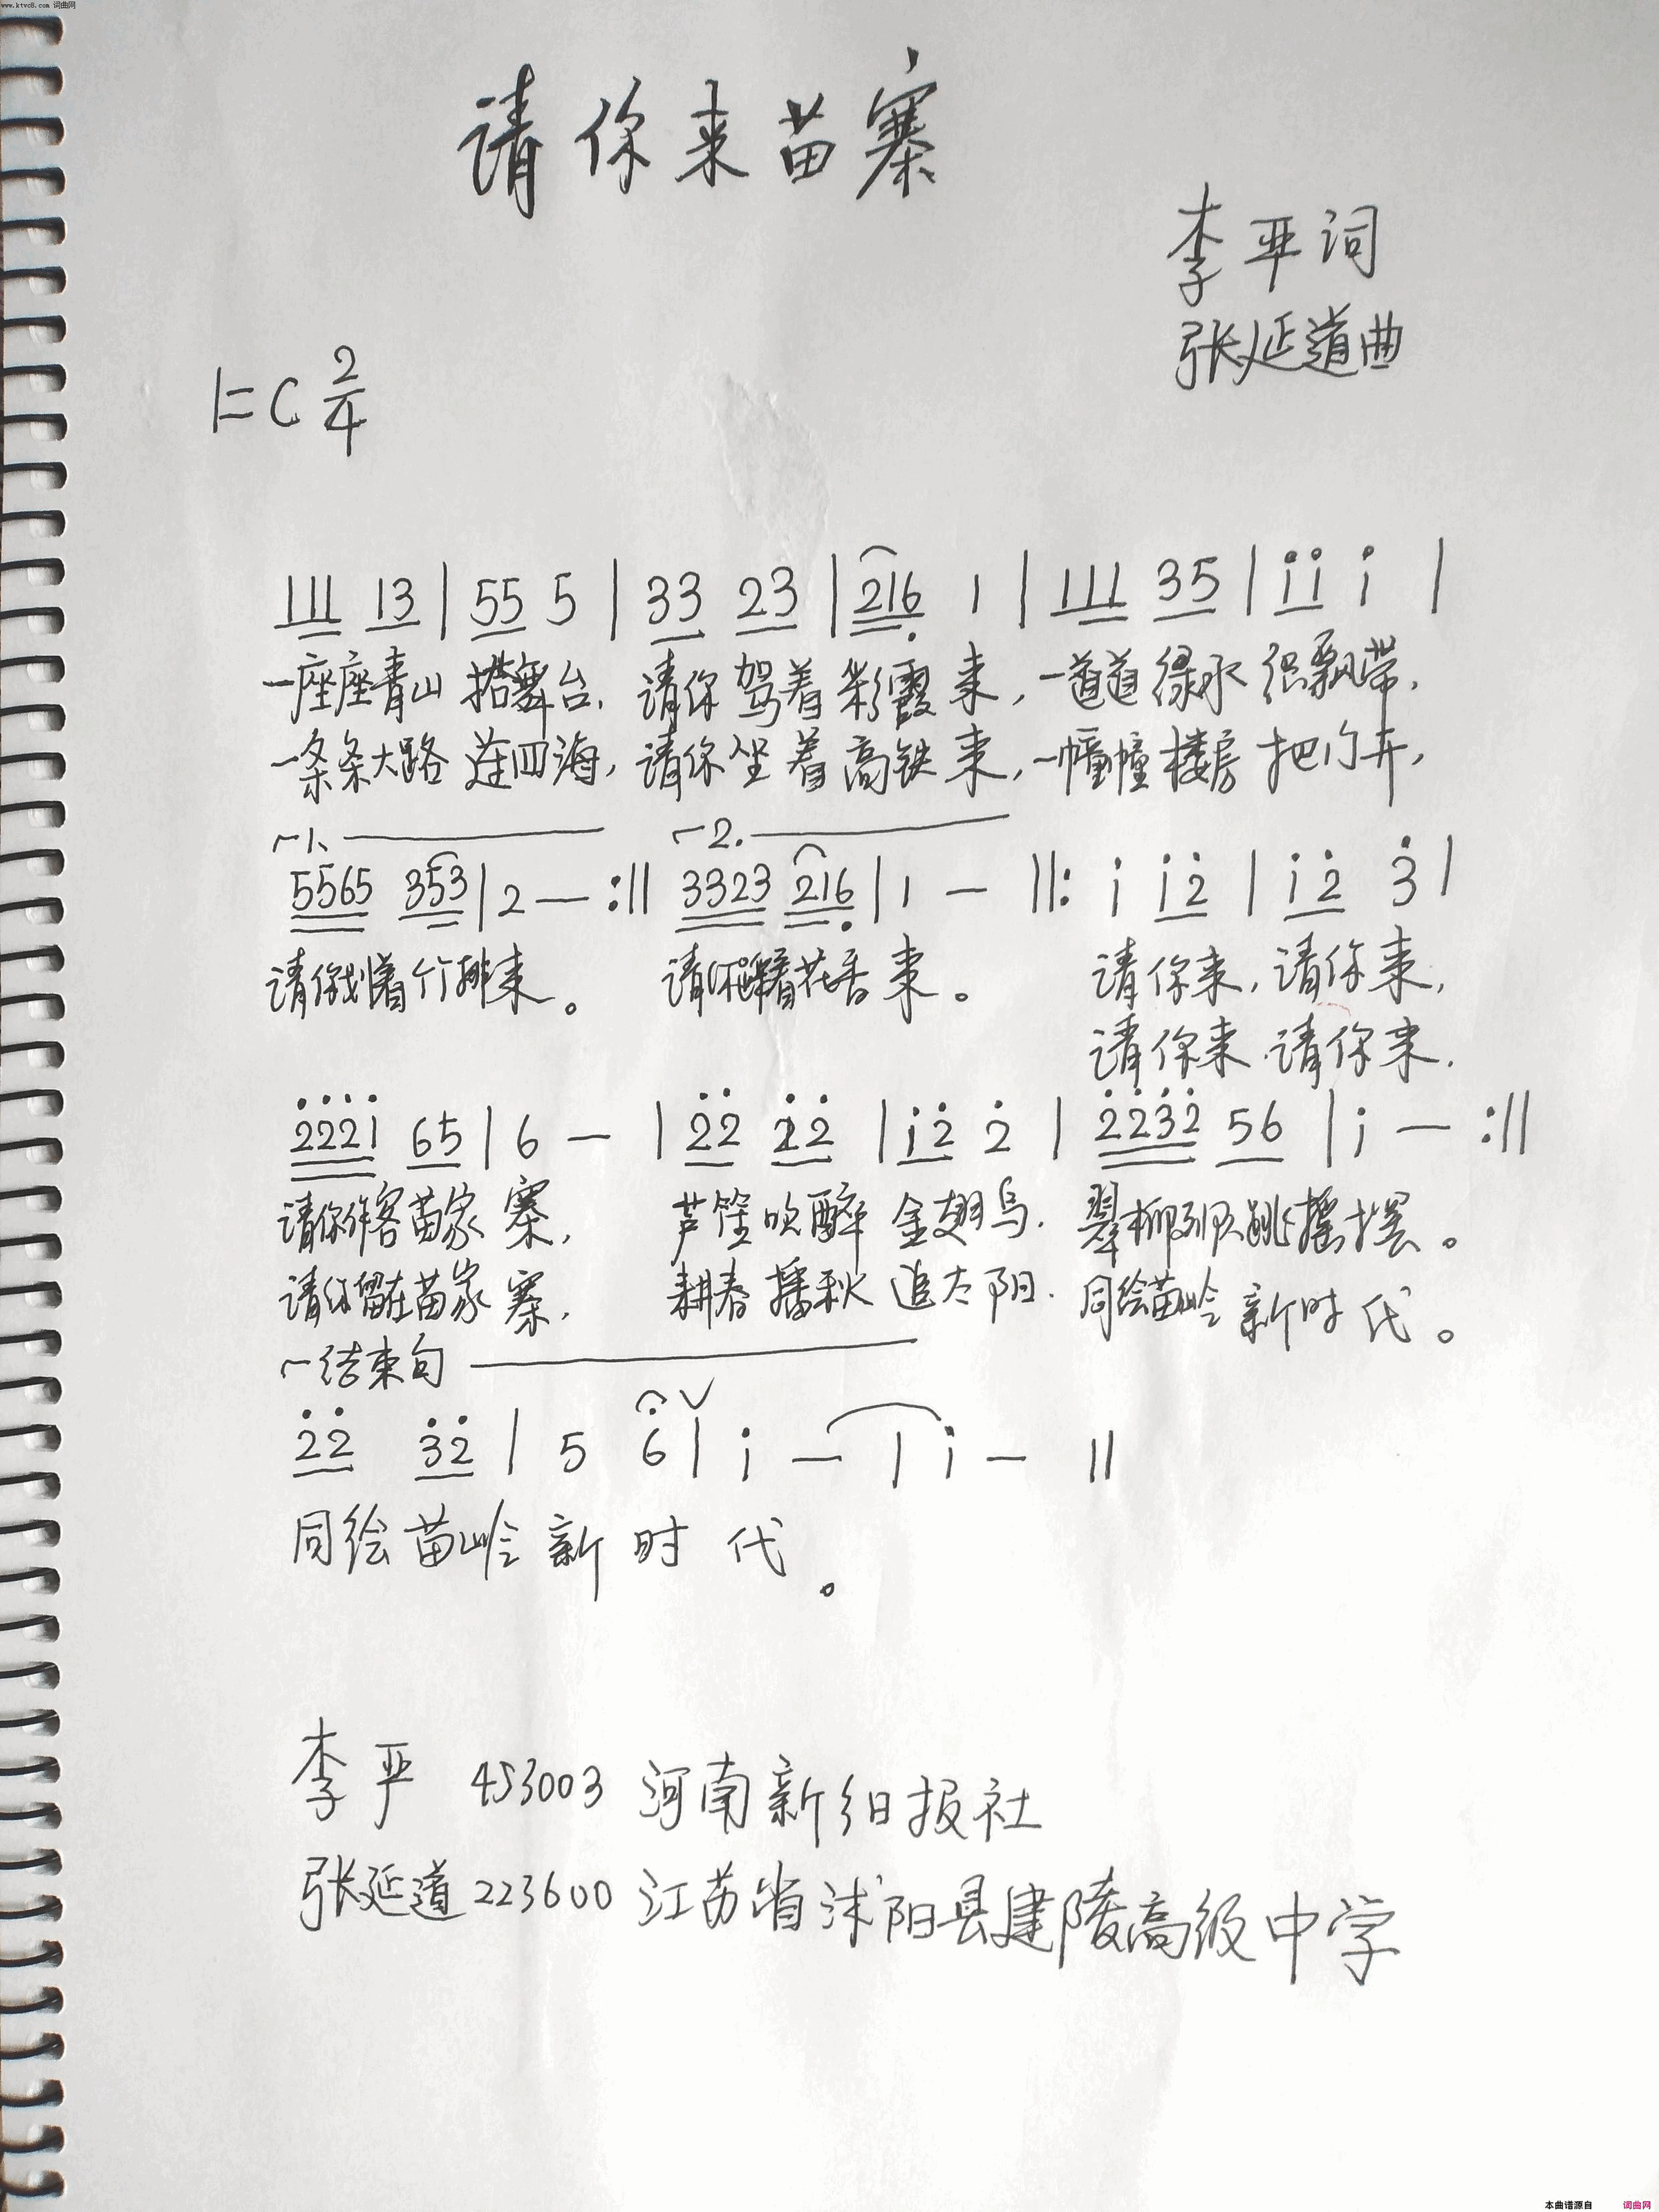 www.ktvc8.com 词曲网
请你来苗寨
李平词
张延道曲
1=C 2/4
111 13 | 55 5 | 33 23 | 216 1 | 111 35 | i i i |
一座座青山 搭舞台, 请你驾着彩霞来, 一道道绿水 织飘带,
一条条大路 连四海, 请你坐着高铁来, 一幢幢楼房 把门开,
1. 2.
5565 353 | 2 — :|| 3323 216 | 1 — ||: i i2 | i2 3 |
请你划着竹排来。 请你踩着花香来。 请你来, 请你来,
请你来, 请你来.
222i 65 | 6 — | 22 22 | i2 2 | 2232 56 | i — :||
请你作客苗家寨, 芦笙吹醉金翅鸟. 翠柳列队跳摇摆。
请你留在苗家寨, 耕春播秋追太阳. 同绘苗岭新时代。
结束句
22 32 | 5 6 | i — | i — ||
同绘苗岭新时代。
李平 453003 河南新乡日报社
张延道 223600 江苏省沭阳县建陵高级中学
本曲谱源自 词曲网